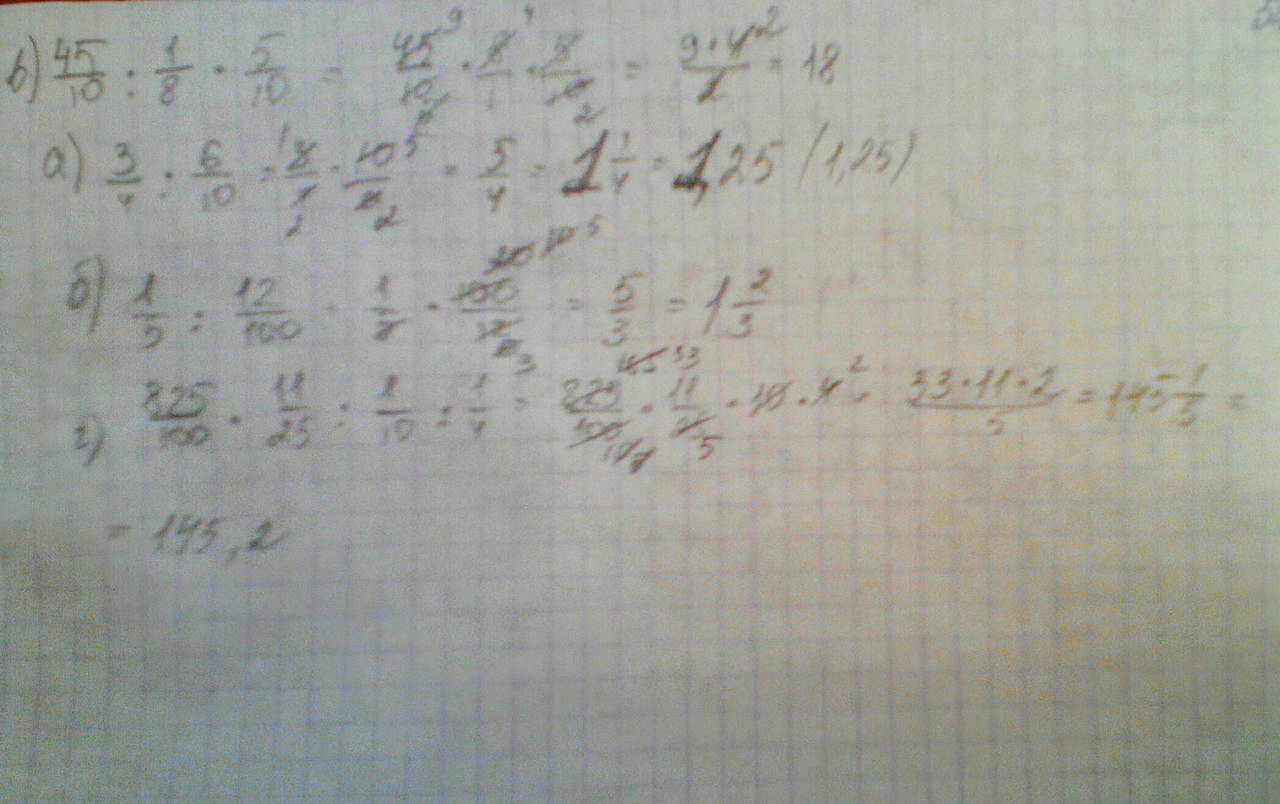 в) 45/10 : 1/8 · 5/10 = 45/10 · 8/1 · 5/10 = 9·4/2 = 18
а) 3/4 : 6/10 = 3/4 · 10/6 = 5/4 = 1 1/4 = 1,25 (1,25)
б) 1/5 : 12/100 = 1/5 · 100/12 = 5/3 = 1 2/3
г) 825/100 · 11/25 : 1/10 : 1/4 = 825/100 · 11/25 · 10 · 4 = 33·11·2/5 = 145 1/5 =
= 145,2